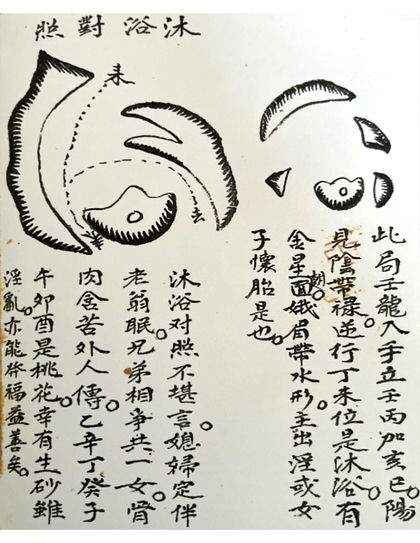 沐浴對照
来
来
去
此局壬龍入手立壬丙加亥巳。陽
見陰帶祿逆行丁未位是沐浴。有
金星面娥眉帶水形。主出淫或女
子懷胎是也。
沐浴对照不堪言。媳婦定伴
老翁眠。兄弟相爭共一女。骨
肉含苦外人傳。乙辛丁癸子
午卯酉是桃花。幸有生砂雖
淫亂亦能福益善矣。